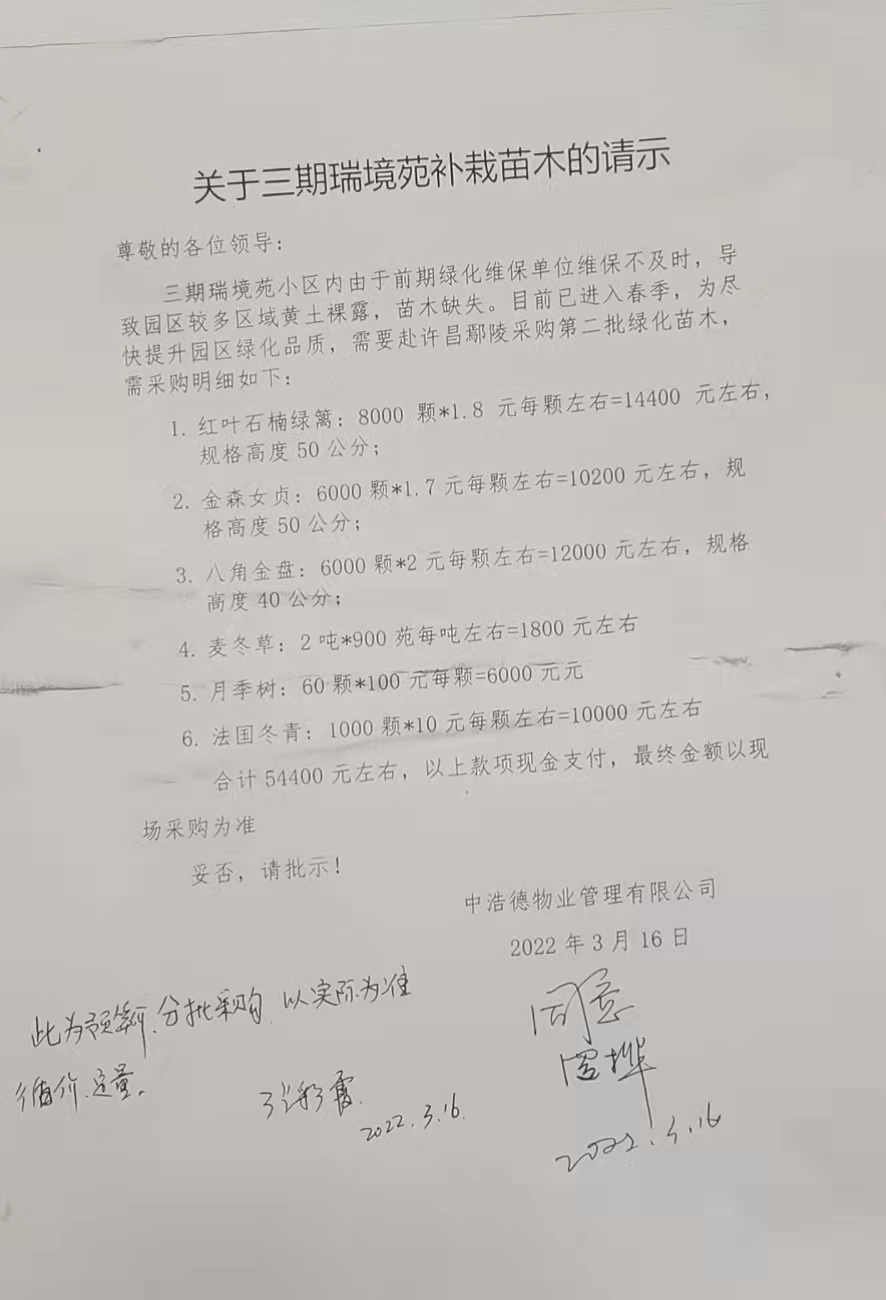 关于三期瑞境苑补栽苗木的请示
尊敬的各位领导：
三期瑞境苑小区内由于前期绿化维保单位维保不及时，导
致园区较多区域黄土裸露，苗木缺失。目前已进入春季，为尽
快提升园区绿化品质，需要赴许昌鄢陵采购第二批绿化苗木，
需采购明细如下：
1. 红叶石楠绿篱：8000 颗*1.8 元每颗左右=14400 元左右，
规格高度 50 公分；
2. 金森女贞：6000 颗*1.7 元每颗左右=10200 元左右，规
格高度 50 公分；
3. 八角金盘：6000 颗*2 元每颗左右=12000 元左右，规格
高度 40 公分；
4. 麦冬草：2 吨*900 苑每吨左右=1800 元左右
5. 月季树：60 颗*100 元每颗=6000 元元
6. 法国冬青：1000 颗*10 元每颗左右=10000 元左右
合计 54400 元左右，以上款项现金支付，最终金额以现
场采购为准
妥否，请批示！
中浩德物业管理有限公司
2022 年 3 月 16 日
此为预算、分批采购、以实际为准
价、定量。
同意
2022.3.16.
2022.3.16